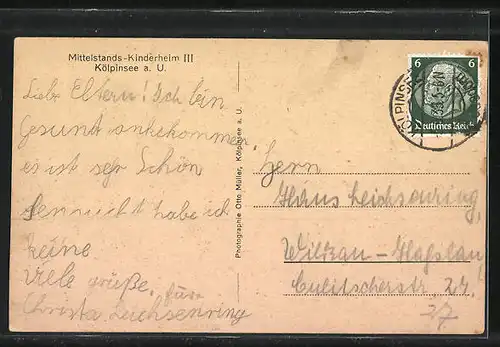 Mittelstands-Kinderheim III
Kölpinsee a. U.
Liebe Eltern! Ich bin
Gesund ankekommen
es ist ser Schön
Sennsucht habe ich
keine
Viele grüße, für
Christa Leichsenring
Photographie Otto Müller, Kölpinsee a. U.
6 6
Deutsches Reich
KÖLPINSEE
Herrn
Hans Leichsenring
Wilkau-Haßlau
Culitzscherstr 27.
27